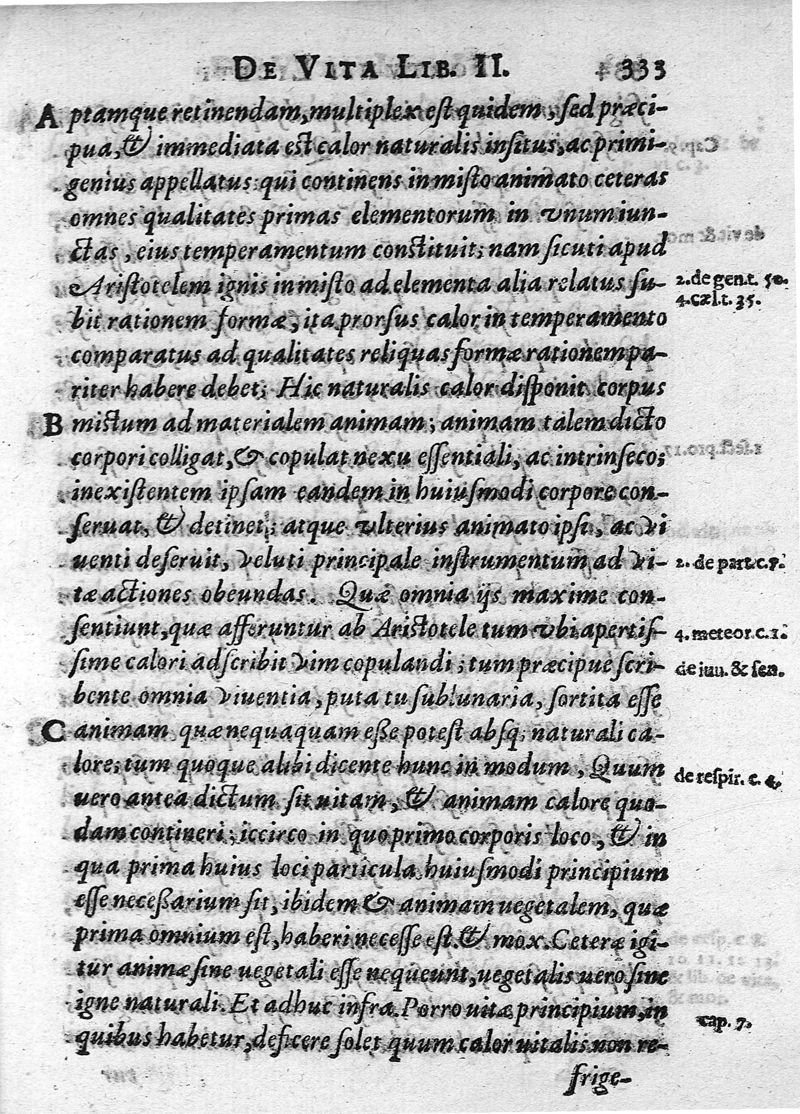 DE VITA LIB. II. 333
A ptamque retinendam, multiplex est quidem, sed præci-
pua, & immediata est calor naturalis insitus, ac primi-
genius appellatus: qui continens in misto animato ceteras
omnes qualitates primas elementorum in vnum iun-
ctas, eius temperamentum constituit; nam sicuti apud
Aristotelem ignis in misto ad elementa alia relatus su-
2. de gen. t. 50.
4. cæl. t. 35.
bit rationem formæ, ita prorsus calor in temperamento
comparatus ad qualitates reliquas formæ rationem pa-
riter habere debet; Hic naturalis calor disponit corpus
B mistum ad materialem animam; animam talem dicto
corpori colligat, & copulat nexu essentiali, ac intrinseco;
inexistentem ipsam eandem in huiusmodi corpore con-
seruat, & detinet; atque vlterius animato ipsi, ac vi
uenti deseruit, veluti principale instrumentum ad vi-
2. de part. c. 7.
tæ actiones obeundas. Quæ omnia ijs maxime con-
sentiunt, quæ afferuntur ab Aristotele tum vbi apertis-
4. meteor. c. 1.
sime calori adscribit vim copulandi; tum præcipue scri-
de iuu. & sen.
bente omnia viuentia, puta tu sublunaria, sortita esse
C animam quæ nequaquam esse potest absq; naturali ca-
lore; tum quoque alibi dicente hunc in modum, Quum
de respir. c. 4.
uero antea dictum sit uitam, & animam calore quo-
dam contineri; iccirco in quo primo corporis loco, & in
qua prima huius loci particula huiusmodi principium
esse necessarium sit, ibidem & animam uegetalem, quæ
prima omnium est, haberi necesse est. & mox. Ceteræ igi-
tur animæ sine uegetali esse nequeunt, uegetalis uero sine
igne naturali. Et adhuc infra. Porro uitæ principium, in
cap. 7.
quibus habetur, deficere solet quum calor uitalis non re-
frige-